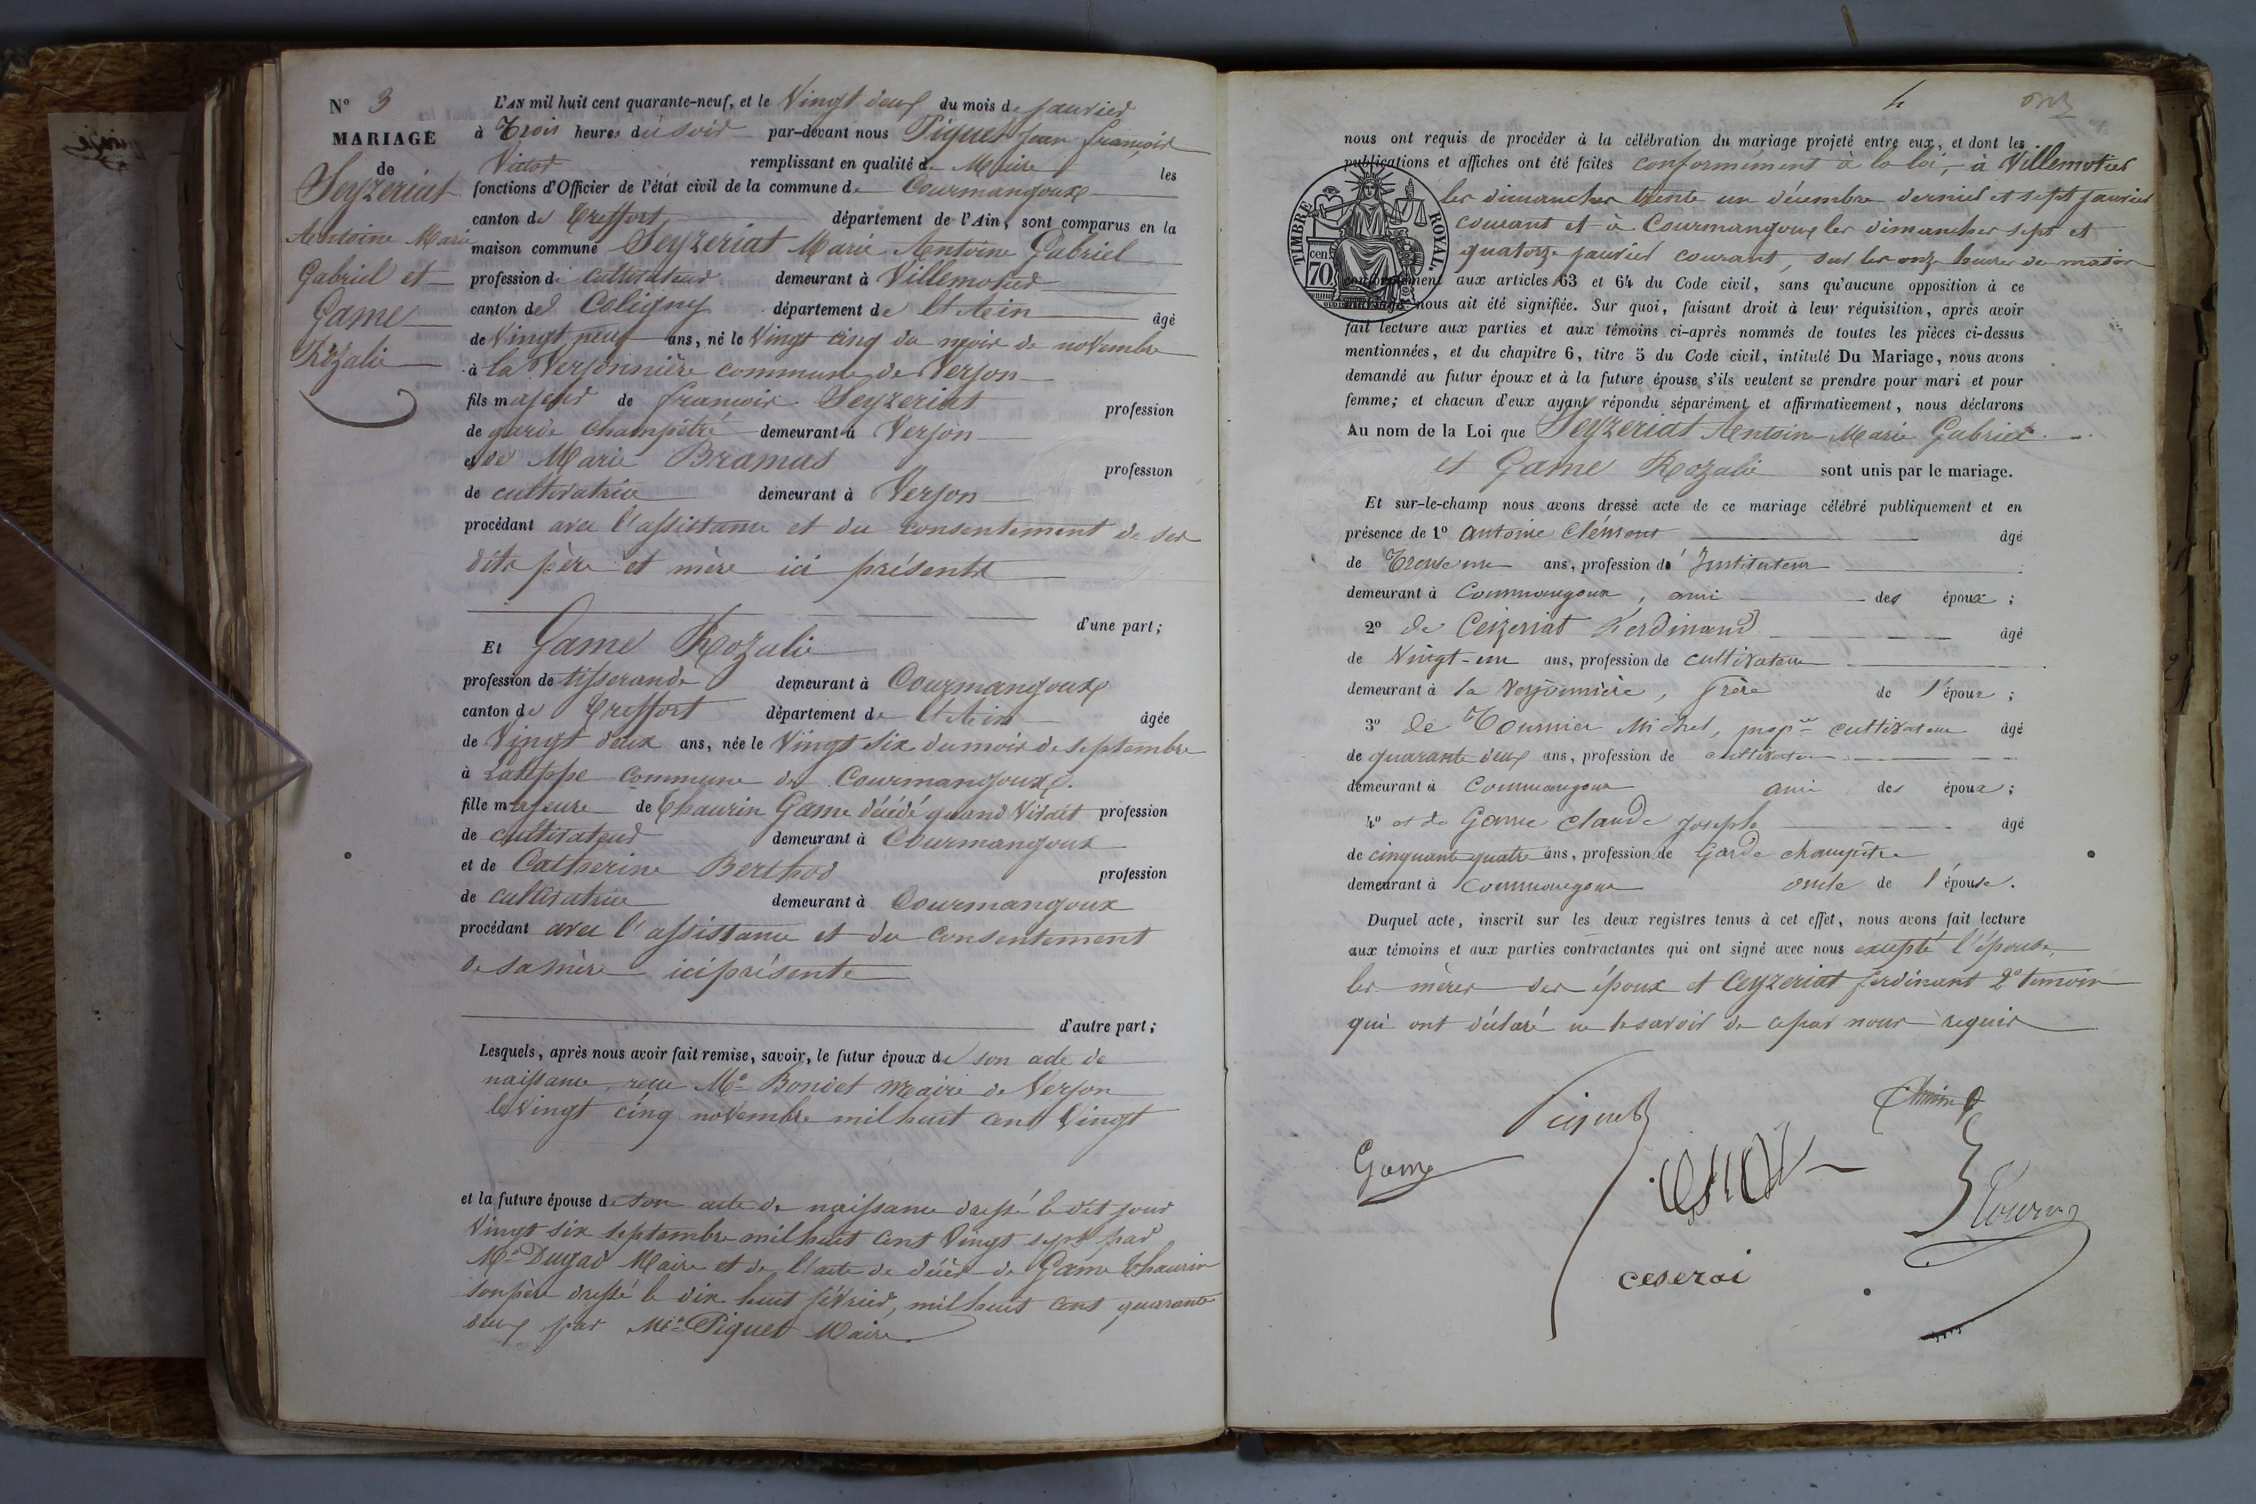 N° 3
MARIAGE
de
Seyzeriat
Antoine Marie
Gabriel et
Game
Rozalie
L'AN mil huit cent quarante-neuf, et le Vingt deux du mois de janvier
à Trois heures du soir par-devant nous Piquet jean françois
Victor remplissant en qualité de Maire les
fonctions d'Officier de l'état civil de la commune de Courmangoux
canton de Treffort département de l'Ain, sont comparus en la
maison commune Seyzeriat Marie Antoine Gabriel
profession de cultivateur demeurant à Villemotier
canton de Coligny département de l'Ain âgé
de Vingt neuf ans, né le Vingt cinq du mois de novembre
à la Verjonnière commune de Verjon
fils majeur de françois Seyzeriat profession
de garde champêtre demeurant à Verjon
et de Marie Bramas profession
de cultivatrice demeurant à Verjon
procédant avec l'assistance et du consentement de ses
dits père et mère ici présents
d'une part;
Et Game Rozalie
profession de tisserande demeurant à Courmangoux
canton de Treffort département de l'Ain âgée
de Vingt deux ans, née le Vingt six du mois de septembre
à Lateppe commune de Courmangoux
fille majeure de Thaurin Game décédé quand Vivait profession
de cultivateur demeurant à Courmangoux
et de Catherine Berthod profession
de cultivatrice demeurant à Courmangoux
procédant avec l'assistance et du consentement
de sa mère ici présente
d'autre part;
Lesquels, après nous avoir fait remise, savoir, le futur époux de son acte de
naissance, reçu Mr Bondet Maire de Verjon
le Vingt cinq novembre mil huit cent Vingt
et la future épouse de son acte de naissance dressé le dit jour
Vingt six septembre mil huit cent Vingt sept par
Mr Dugad Maire et de l'acte de décès de Game Thaurin
son père dressé le dix huit février, mil huit cent quarante
deux par Mr Piquet Maire
4
onze
nous ont requis de procéder à la célébration du mariage projeté entre eux, et dont les
publications et affiches ont été faites conformément à la loi, à Villemotier
les dimanches trente un décembre dernier et sept janvier
courant et à Courmangoux les dimanches sept et
quatorze janvier courant, sur les onze heures du matin
conformément aux articles 63 et 64 du Code civil, sans qu'aucune opposition à ce
mariage nous ait été signifiée. Sur quoi, faisant droit à leur réquisition, après avoir
fait lecture aux parties et aux témoins ci-après nommés de toutes les pièces ci-dessus
mentionnées, et du chapitre 6, titre 5 du Code civil, intitulé Du Mariage, nous avons
demandé au futur époux et à la future épouse s'ils veulent se prendre pour mari et pour
femme; et chacun d'eux ayant répondu séparément et affirmativement, nous déclarons
Au nom de la Loi que Seyzeriat Antoine Marie Gabriel
et Game Rozalie sont unis par le mariage.
Et sur-le-champ nous avons dressé acte de ce mariage célébré publiquement et en
présence de 1° Antoine Clément âgé
de Trente un ans, profession de Instituteur
demeurant à Courmangoux, ami des époux;
2° de Ceizeriat Ferdinand âgé
de Vingt-un ans, profession de cultivateur
demeurant à la Verjonnière, frère de l'époux;
3° de Tournier Michel, propre cultivateur âgé
de quarante deux ans, profession de cultivateur
demeurant à Courmangoux ami des époux;
4° et de Game Claude Joseph âgé
de cinquante quatre ans, profession de Garde champêtre
demeurant à Courmangoux oncle de l'épouse.
Duquel acte, inscrit sur les deux registres tenus à cet effet, nous avons fait lecture
aux témoins et aux parties contractantes qui ont signé avec nous excepté l'épouse,
les mères des époux et Ceyzeriat ferdinant 2e temoin
qui ont déclaré ne le savoir de ce par nous requis
TIMBRE ROYAL.
70 cent.
Piquet
Game
Tourn
ceserai